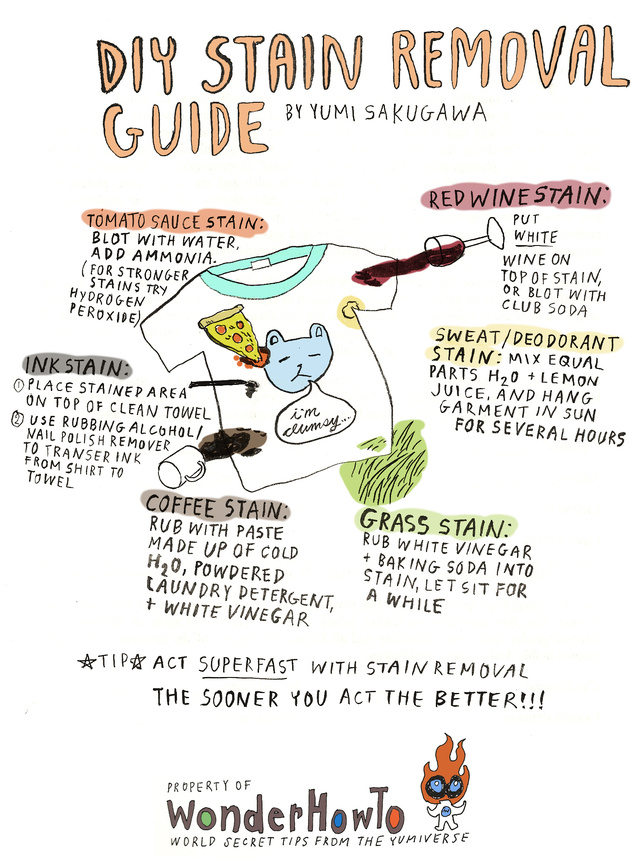 DIY STAIN REMOVAL
GUIDE
BY YUMI SAKUGAWA
TOMATO SAUCE STAIN:
BLOT WITH WATER,
ADD AMMONIA.
(FOR STRONGER
STAINS TRY
HYDROGEN
PEROXIDE)
RED WINE STAIN:
PUT
WHITE
WINE ON
TOP OF STAIN,
OR BLOT WITH
CLUB SODA
SWEAT/DEODORANT
STAIN: MIX EQUAL
PARTS H2O + LEMON
JUICE, AND HANG
GARMENT IN SUN
FOR SEVERAL HOURS
INK STAIN:
① PLACE STAINED AREA
ON TOP OF CLEAN TOWEL
② USE RUBBING ALCOHOL/
NAIL POLISH REMOVER
TO TRANSER INK
FROM SHIRT TO
TOWEL
i'm
clumsy...
COFFEE STAIN:
RUB WITH PASTE
MADE UP OF COLD
H2O, POWDERED
LAUNDRY DETERGENT,
+ WHITE VINEGAR
GRASS STAIN:
RUB WHITE VINEGAR
+ BAKING SODA INTO
STAIN, LET SIT FOR
A WHILE
☆TIP☆ ACT SUPERFAST WITH STAIN REMOVAL
THE SOONER YOU ACT THE BETTER!!!
PROPERTY OF
WonderHowTo
WORLD SECRET TIPS FROM THE YUMIVERSE